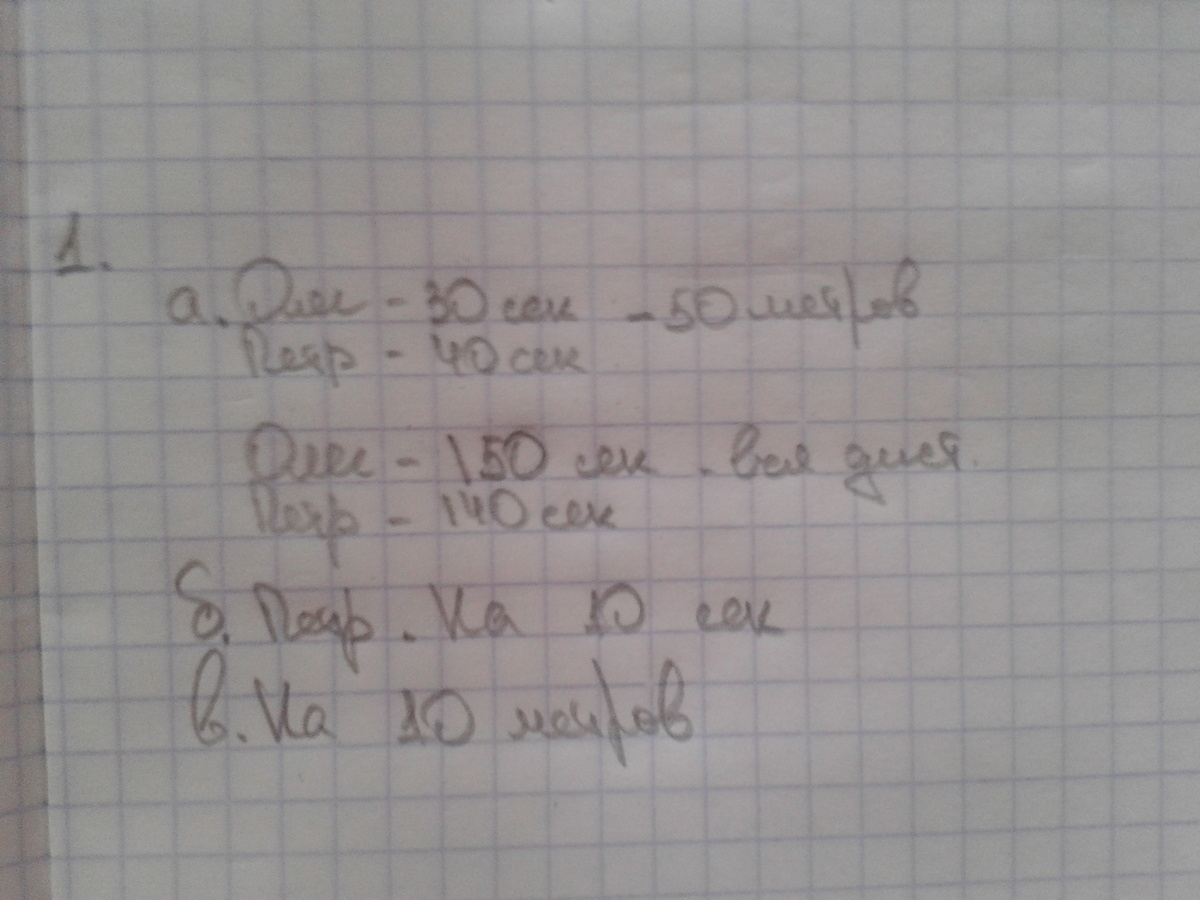 1.
а. Олег - 30 сек - 50 метров
Петр - 40 сек
Олег - 150 сек . вся дист.
Петр - 140 сек
б. Петр. На 10 сек
в. На 10 метров